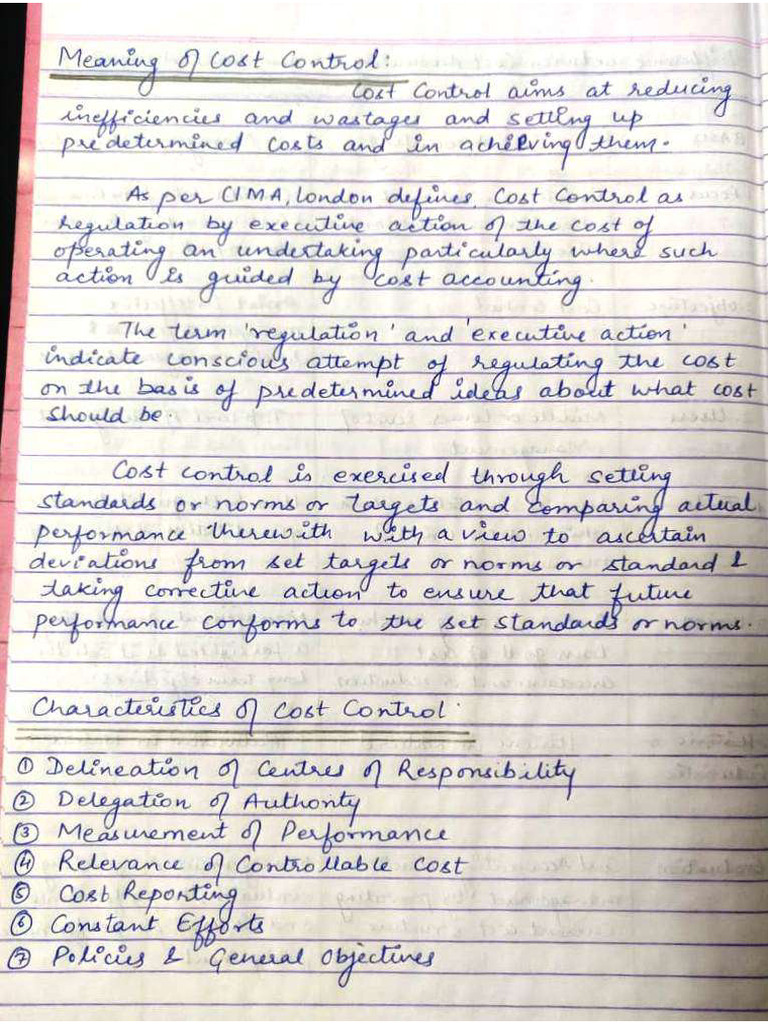 Meaning of Cost Control:
Cost Control aims at reducing
inefficiencies and wastages and setting up
predetermined costs and in achieving them.
As per CIMA, London defines, Cost Control as
regulation by executive action of the cost of
operating an undertaking particularly where such
action is guided by cost accounting.
The term 'regulation' and 'executive action'
indicate conscious attempt of regulating the cost
on the basis of predetermined ideas about what cost
should be.
Cost control is exercised through setting
standards or norms or targets and comparing actual
performance therewith with a view to ascertain
deviations from set targets or norms or standard &
taking corrective action to ensure that future
performance conforms to the set standards or norms.
Characteristics of Cost Control
① Delineation of Centres of Responsibility
② Delegation of Authority
③ Measurement of Performance
④ Relevance of Controllable Cost
⑤ Cost Reporting
⑥ Constant Efforts
⑦ Policies & General Objectives